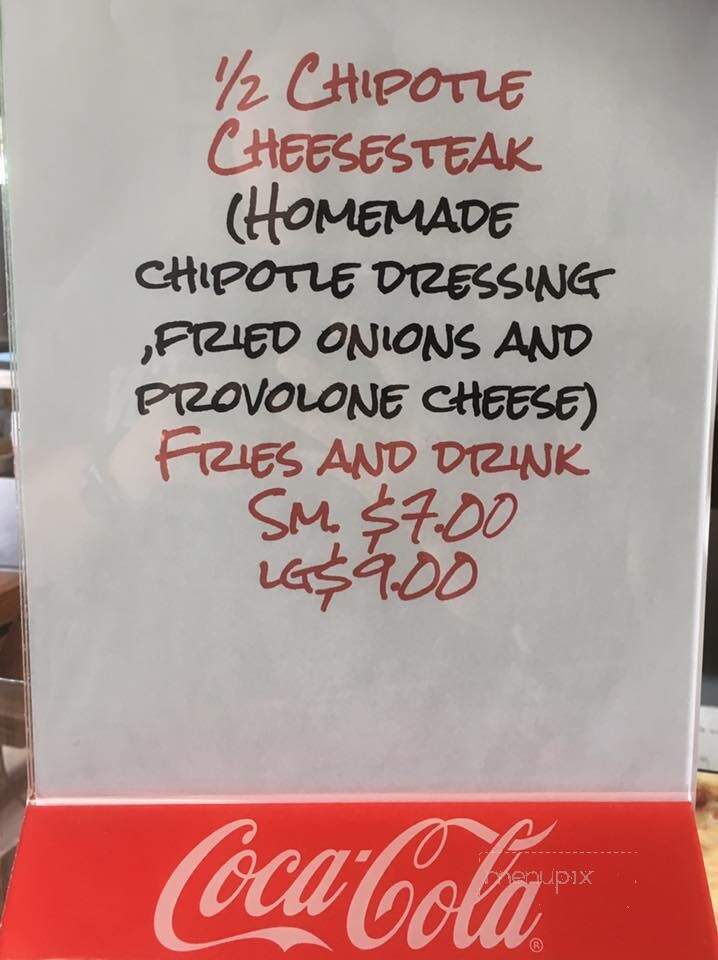 ½ CHIPOTLE
CHEESESTEAK
(HOMEMADE
CHIPOTLE DRESSING
,FRIED ONIONS AND
PROVOLONE CHEESE)
FRIES AND DRINK
SM. $7.00
LG$9.00
Coca-Cola®
menupix